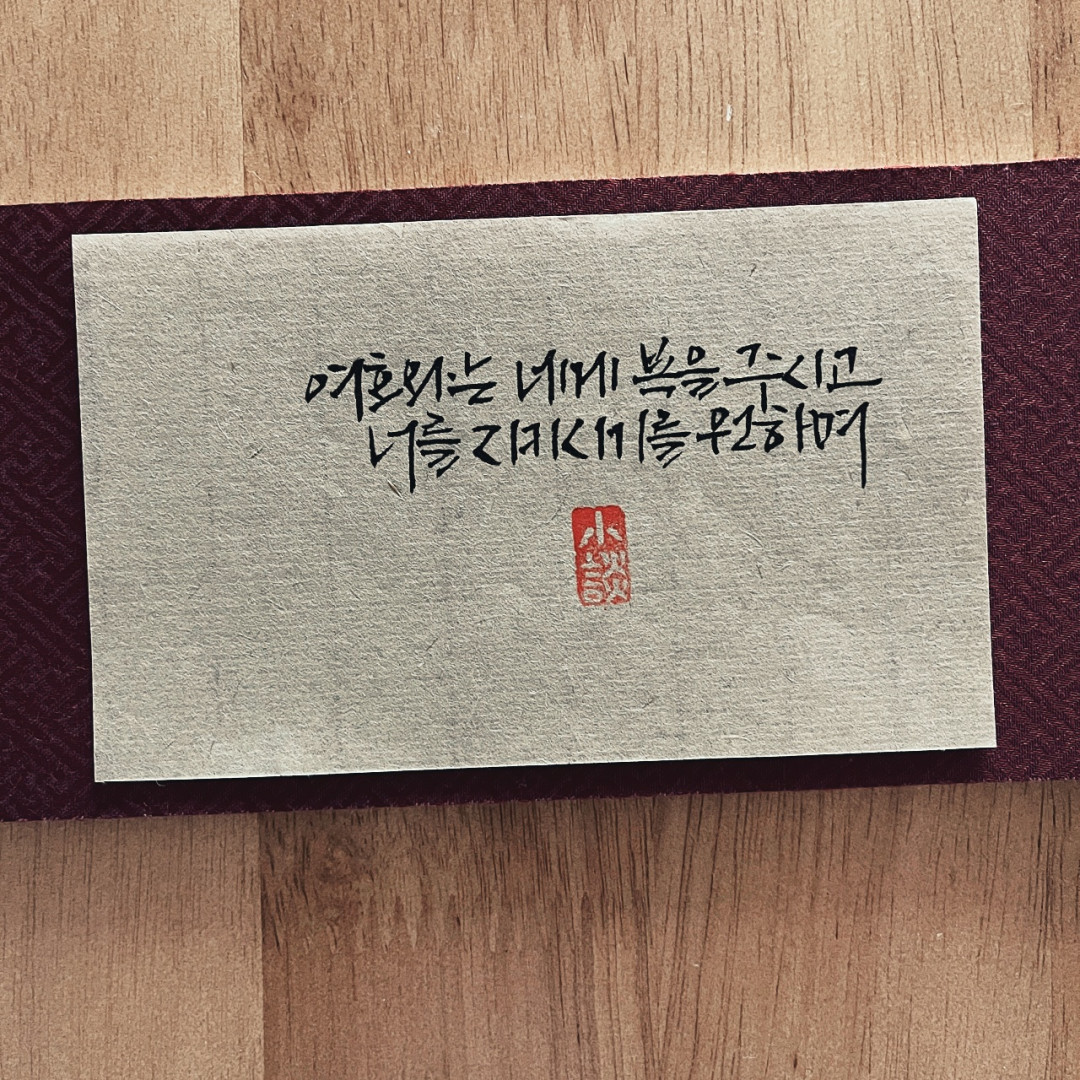 여호와는 네게 복을 주시고
너를 지키시기를 원하며
小談